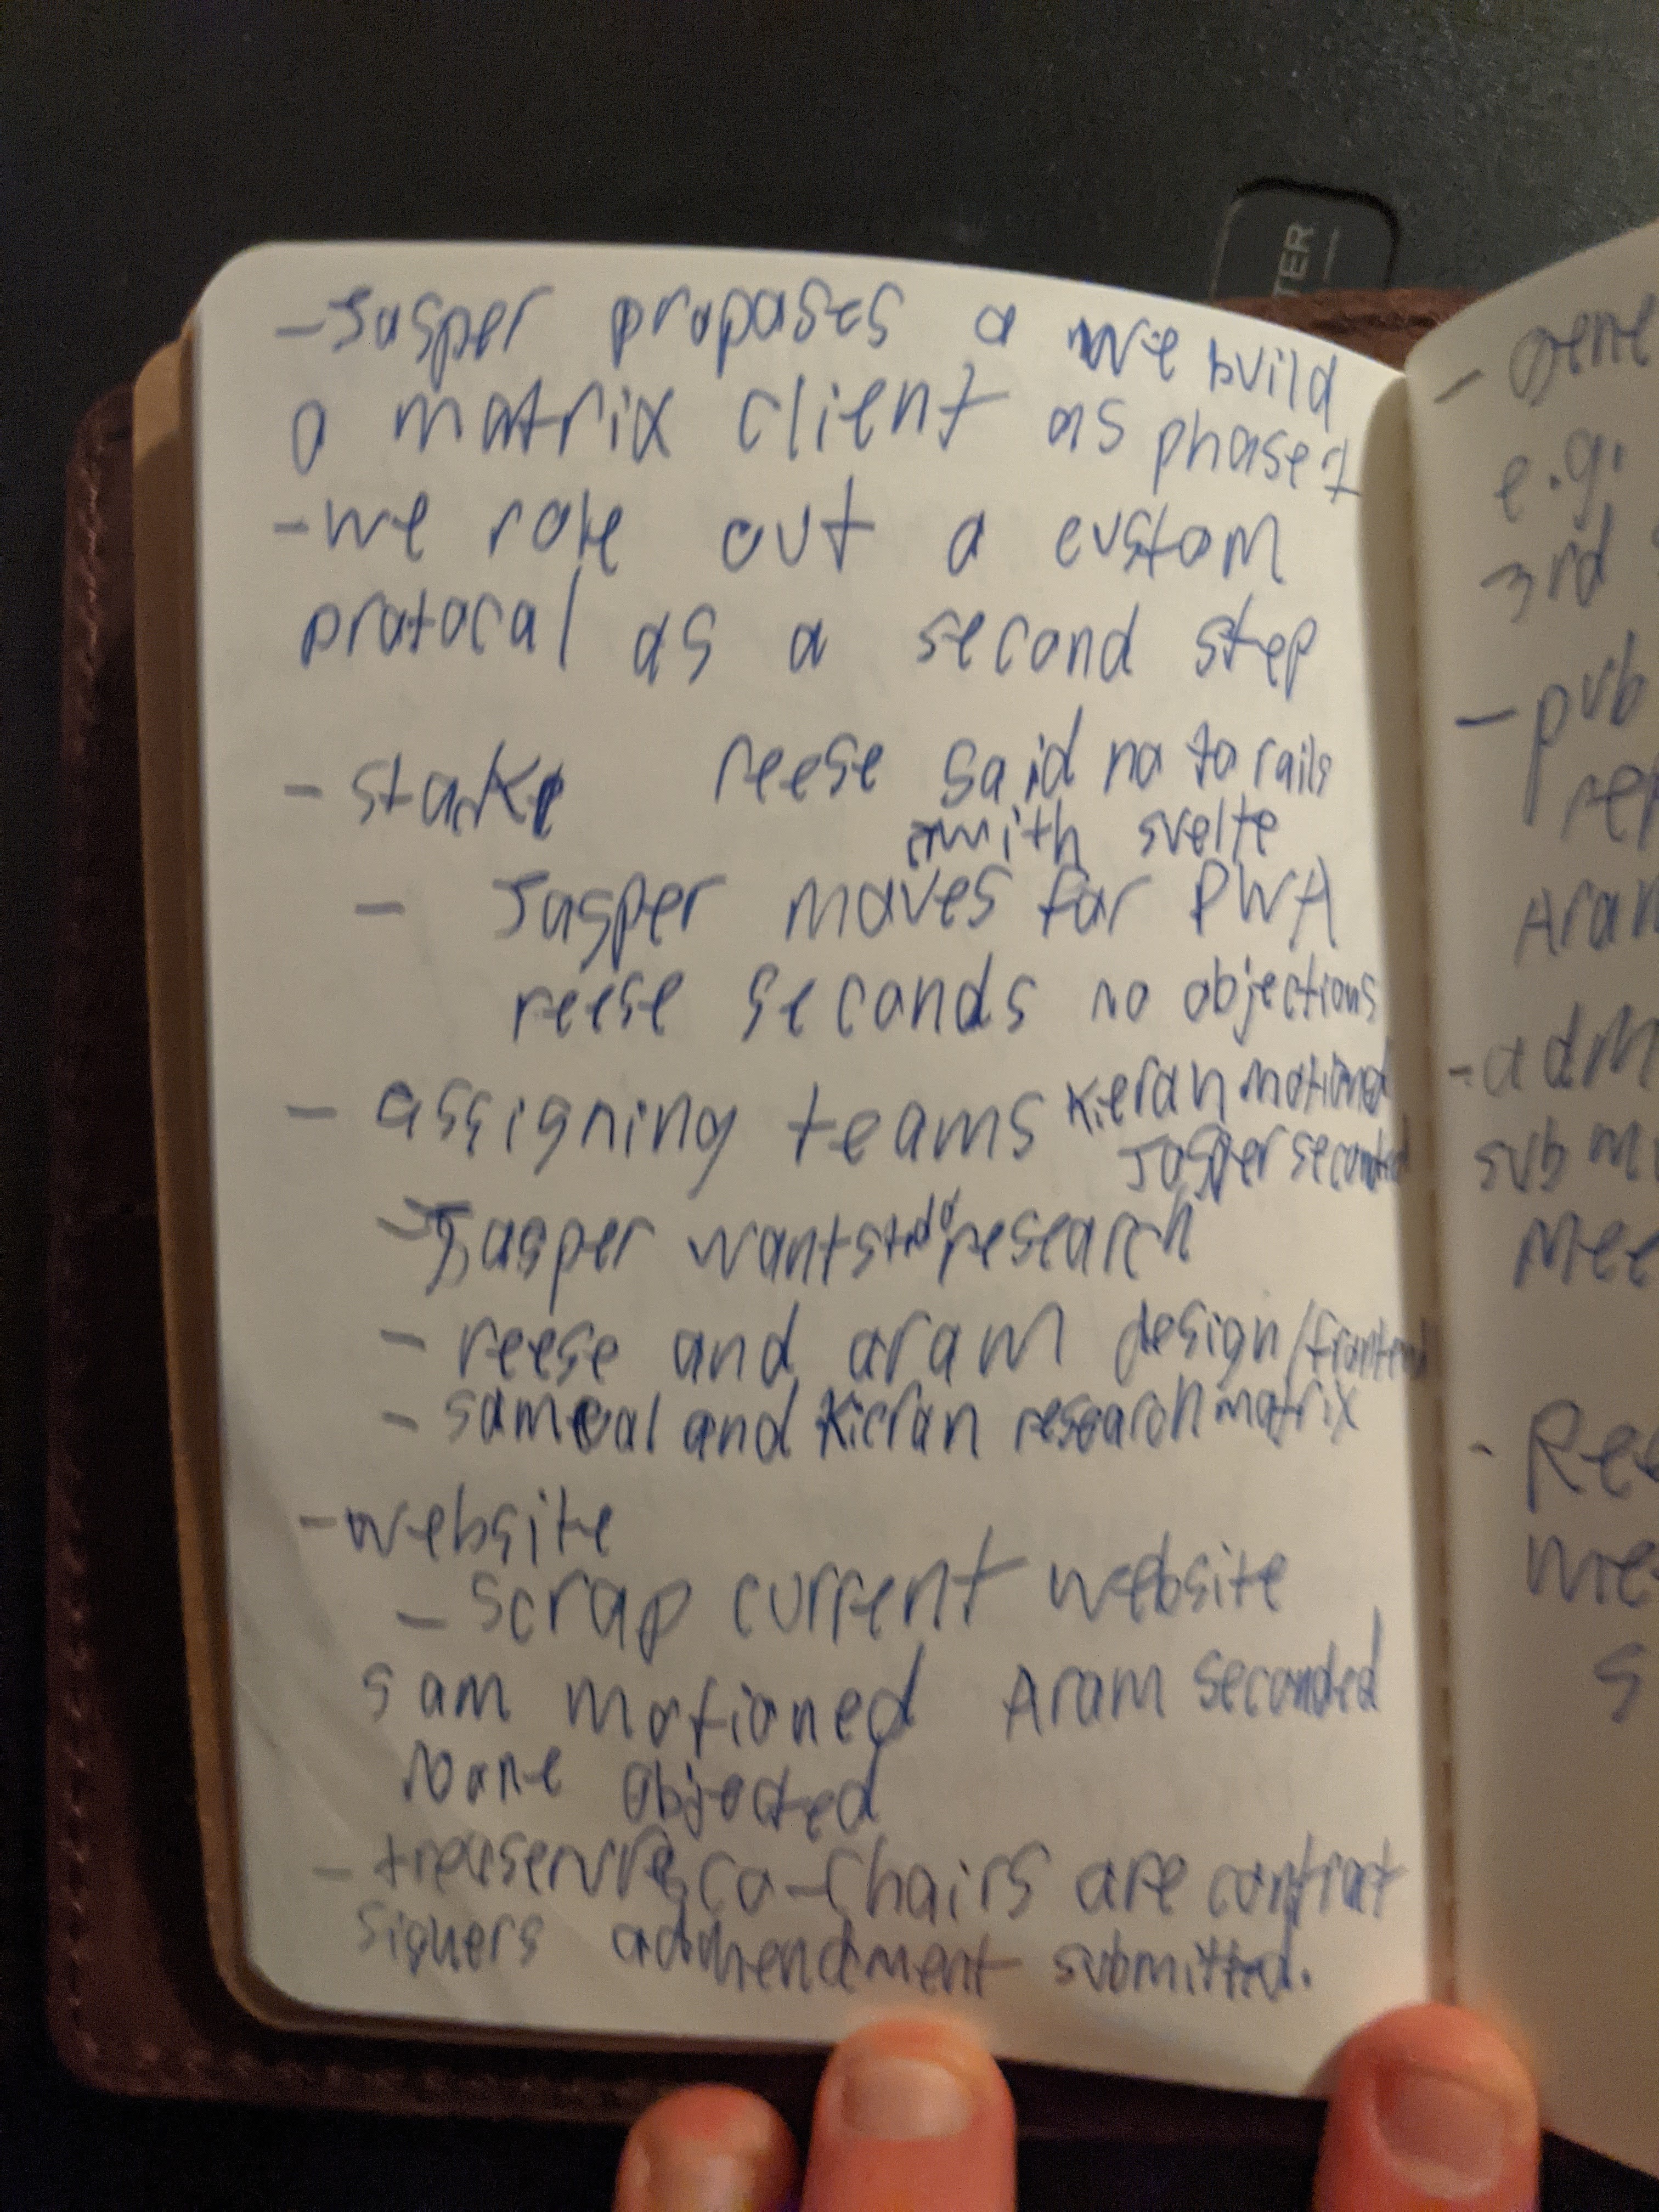 -Jasper proposes a we build
a matrix client as phase 1
-we role out a custom
protocal as a second step
- stack reese said no to rails
with svelte
- Jasper moves for PWA
reese seconds no objections
- assigning teams Kieran motioned
Jasper seconded
- Jasper wants to do research
- reese and aram design/frontend
- samual and Kieran research matrix
-website
- scrap current website
sam motioned Aram seconded
none objected
- co-chairs are contract
signers admendment submitted.
TER
e.g.
3rd
- pub
Aram
- adm
subm
Mee
- Ree